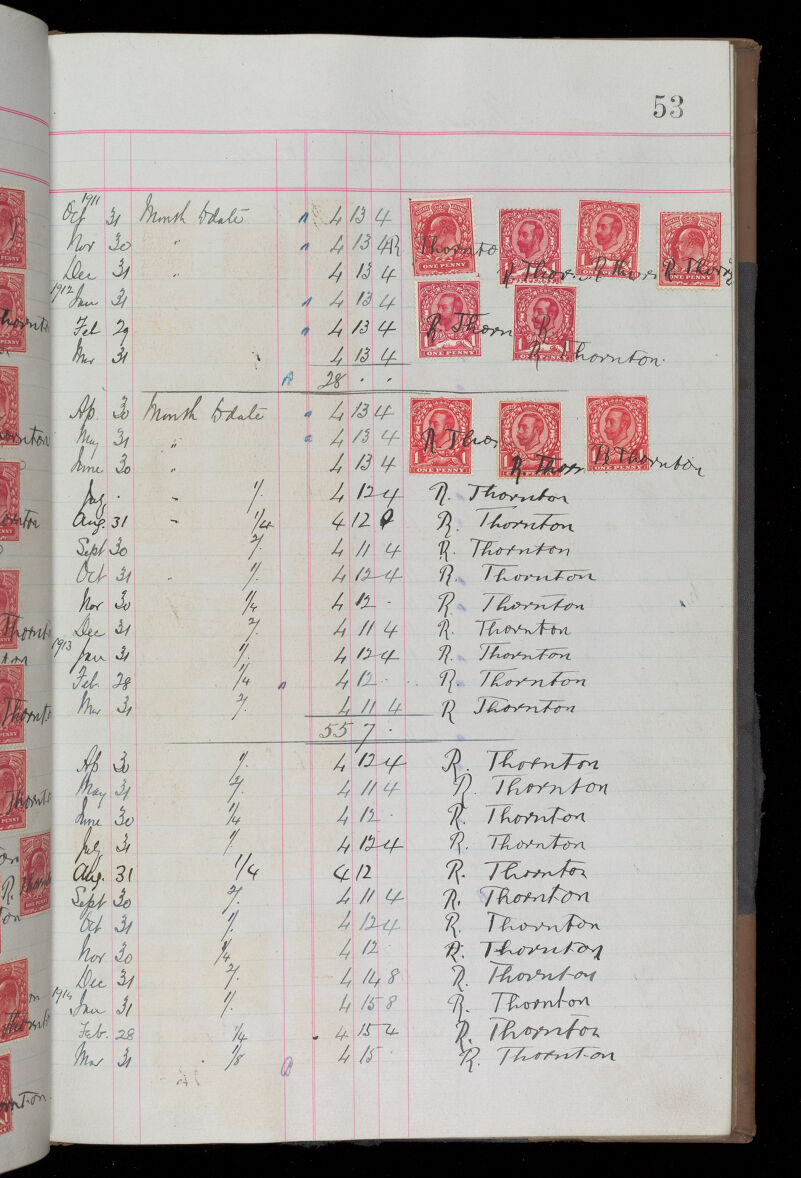 53
1911
Oct 31 Month to date 4 13 4 R Thornton
Nov 30 " 4 13 4 R Thornton
Dec 31 " 4 13 4 R Thornton
1912
Jan 31 4 13 4 R Thornton
Feb 29 4 13 4 R Thorn
Mar 31 4 13 4 R Thornton
28 . .
Ap. 30 Month to date 4 13 4 R Thor
May 31 " 4 13 4 R. Thorn
June 30 " 4 13 4 R Thornton
July . " 1/. 4 12 4 R. Thornton
Aug. 31 " 1/4 4 12 0 R. Thornton
Sept 30 2/. 4 11 4 R. Thornton
Oct 31 " 1/. 4 12 4 R. Thornton
Nov 30 1/4 4 12 . R Thornton
Dec 31 2/. 4 11 4 R. Thornton
1913
Jan 31 1/. 4 12 4 R. Thornton
Feb. 28 1/4 4 12 . R. Thornton
Mar 31 2/. 4 11 4 R Thornton
55 7 .
Ap 30 1/. 4 12 4 R. Thornton
May 31 2/. 4 11 4 R. Thornton
June 30 1/4 4 12 . R. Thornton
July 31 1/. 4 12 4 R. Thornton
Aug. 31 1/4 4 12 R. Thornton
Sept 30 2/. 4 11 4 R. Thornton
Oct 31 1/. 4 12 4 R. Thornton
Nov 30 1/4 4 12 . R. Thornton
Dec 31 2/. 4 14 8 R. Thornton
1914
Jan 31 1/. 4 15 8 R. Thornton
Feb. 28 1/4 4 15 4 R. Thornton
Mar 31 1/8 4 15 . R. Thornton
ONE PENNY
ONE PENNY
ONE PENNY
ONE PENNY
ONE PENNY
ONE PENNY
ONE PENNY
ONE PENNY